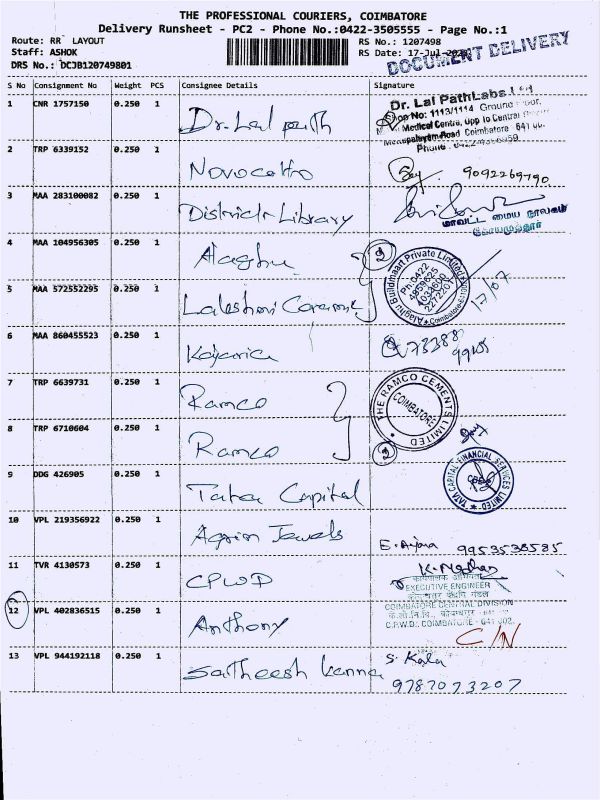 THE PROFESSIONAL COURIERS, COIMBATORE
Delivery Runsheet - PC2 - Phone No.:0422-3505555 - Page No.:1
Route: RR LAYOUT
RS No.: 1207498
Staff: ASHOK
RS Date: 17-Jul-
DOCUMENT DELIVERY
DRS No.: DCJB120749801
S No Consignment No Weight PCS Consignee Details Signature
1 CNR 1757150 0.250 1 Dr. Lal path
Dr. Lal PathLabs Ltd
No: 1113/1114 Ground
Medical Centre, Opp to Central
Road Coimbatore 641
Phone
2 TRP 6339152 0.250 1 9092269790
3 MAA 283100082 0.250 1 District Library
மாவட்ட மைய நூலகம்
கோயமுத்தூர்
4 MAA 104956305 0.250 1 Alaghu
Alaghu Buildmaart Private Limited
Coimbatore
Ph:0422
4859625
4033600
2272201
17/07
5 MAA 572552295 0.250 1 Lakshmi Ceramic
6 MAA 860455523 0.250 1 Kajaria 73388
99105
7 TRP 6639731 0.250 1 Ramco
THE RAMCO CEMENTS LIMITED
COIMBATORE
8 TRP 6710604 0.250 1 Ramco
9 DDG 426905 0.250 1 Tata Capital
TATA CAPITAL FINANCIAL SERVICES LIMITED
10 VPL 219356922 0.250 1 Jewels 9953538585
11 TVR 4130573 0.250 1 CPWD
कार्यपालक अभियंता
EXECUTIVE ENGINEER
COIMBATORE CENTRAL DIVISION
C.P.W.D., COIMBATORE - 641 002.
12 VPL 402836515 0.250 1 Anthony C/N
13 VPL 944192118 0.250 1 Satheesh kanna S. Kala
9787073207